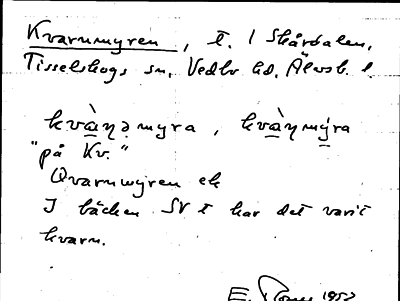 Kvarnmyren, t. l Skårdalen,
Tisselskogs sn, Vedbo hd, Älvsb. l.
kvàṇəmyra, kvàṇmýra
"på Kv."
Qvarnmyren ek
I bäcken SV t har det varit
kvarn.
E. 1952